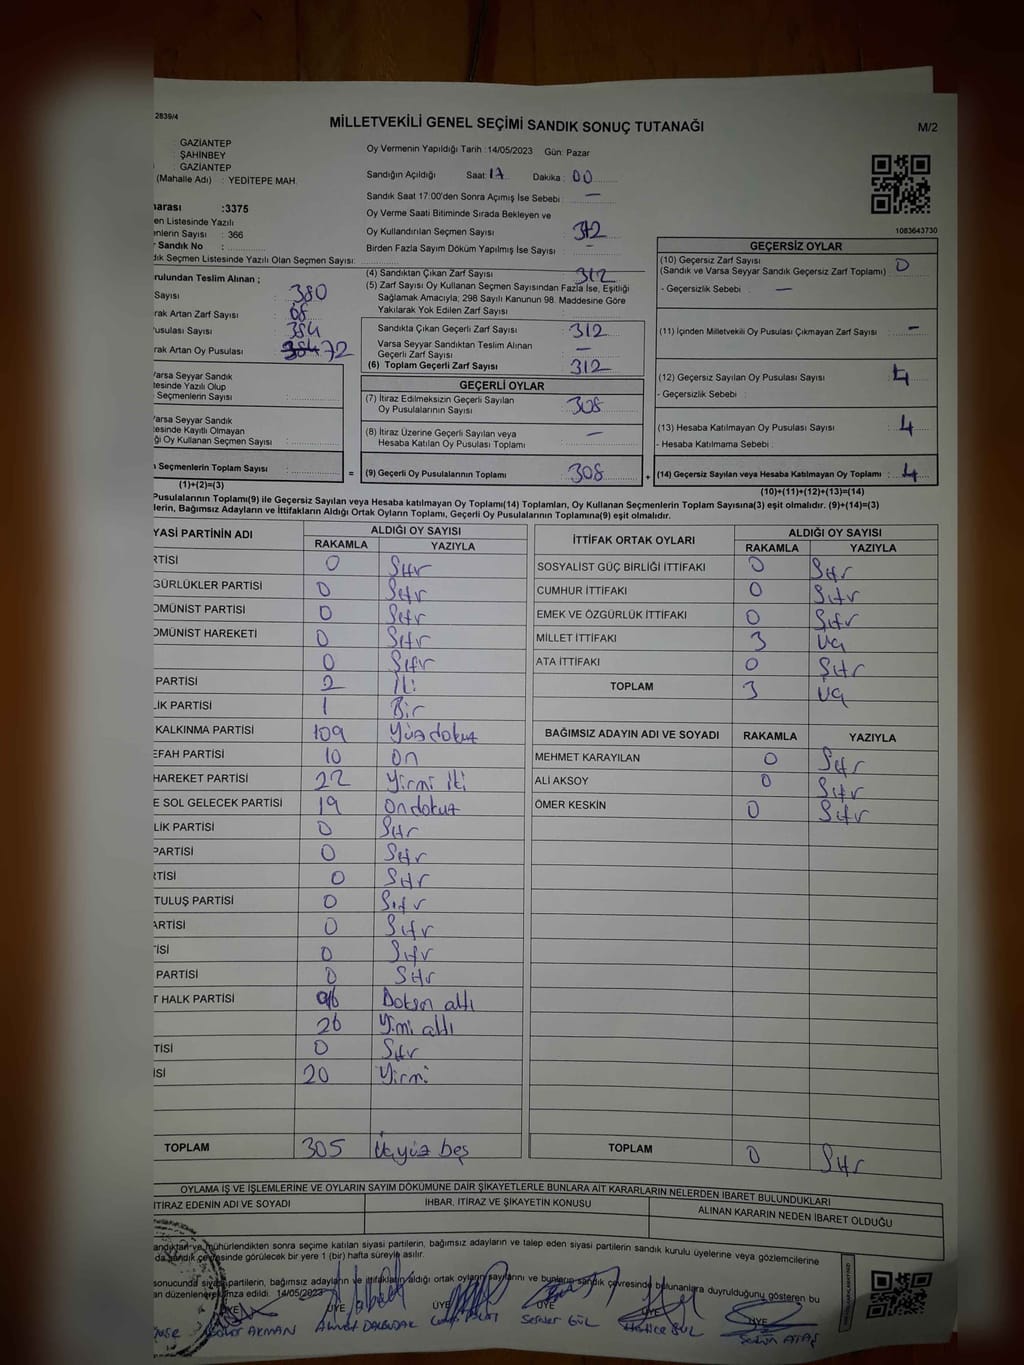 2839/4
MİLLETVEKİLİ GENEL SEÇİMİ SANDIK SONUÇ TUTANAĞI
M/2
: GAZİANTEP
: ŞAHİNBEY
: GAZİANTEP
(Mahalle Adı) : YEDİTEPE MAH.
:3375
Listesinde Yazılı
Sayısı : 366
Sandık No :
Sandık Seçmen Listesinde Yazılı Olan Seçmen Sayısı:
Oy Vermenin Yapıldığı Tarih :14/05/2023 Gün: Pazar
Sandığın Açıldığı Saat: 17 Dakika : 00
Sandık Saat 17:00'den Sonra Açılmış İse Sebebi : —
Oy Verme Saati Bitiminde Sırada Bekleyen ve
Oy Kullandırılan Seçmen Sayısı : 312
Birden Fazla Sayım Döküm Yapılmış İse Sayısı : —
1083643730
Teslim Alınan ;
Sayısı : 380
Artan Zarf Sayısı : 68
Sayısı : 384
Artan Oy Pusulası 72
Varsa Seyyar Sandık
Yazılı Olup
Seçmenlerin Sayısı :
Varsa Seyyar Sandık
Kayıtlı Olmayan
Oy Kullanan Seçmen Sayısı :
Seçmenlerin Toplam Sayısı :
(1)+(2)=(3)
(4) Sandıktan Çıkan Zarf Sayısı : 312
(5) Zarf Sayısı Oy Kullanan Seçmen Sayısından Fazla İse, Eşitliği
Sağlamak Amacıyla; 298 Sayılı Kanunun 98. Maddesine Göre
Yakılarak Yok Edilen Zarf Sayısı :
Sandıkta Çıkan Geçerli Zarf Sayısı : 312
Varsa Seyyar Sandıktan Teslim Alınan
Geçerli Zarf Sayısı : —
(6) Toplam Geçerli Zarf Sayısı : 312
GEÇERLİ OYLAR
(7) İtiraz Edilmeksizin Geçerli Sayılan
Oy Pusulalarının Sayısı : 308
(8) İtiraz Üzerine Geçerli Sayılan veya
Hesaba Katılan Oy Pusulası Toplamı : —
= (9) Geçerli Oy Pusulalarının Toplamı : 308
GEÇERSİZ OYLAR
(10) Geçersiz Zarf Sayısı
(Sandık ve Varsa Seyyar Sandık Geçersiz Zarf Toplamı) : 0
- Geçersizlik Sebebi : —
(11) İçinden Milletvekili Oy Pusulası Çıkmayan Zarf Sayısı : —
(12) Geçersiz Sayılan Oy Pusulası Sayısı : 4
- Geçersizlik Sebebi :
(13) Hesaba Katılmayan Oy Pusulası Sayısı : 4
- Hesaba Katılmama Sebebi :
+ (14) Geçersiz Sayılan veya Hesaba Katılmayan Oy Toplamı : 4
(10)+(11)+(12)+(13)=(14)
Pusulalarının Toplamı(9) ile Geçersiz Sayılan veya Hesaba katılmayan Oy Toplamı(14) Toplamları, Oy Kullanan Seçmenlerin Toplam Sayısına(3) eşit olmalıdır. (9)+(14)=(3)
Bağımsız Adayların ve İttifakların Aldığı Ortak Oyların Toplamı, Geçerli Oy Pusulalarının Toplamına(9) eşit olmalıdır.
PARTİNİN ADI ALDIĞI OY SAYISI
RAKAMLA YAZIYLA
0 Sıfır
PARTİSİ 0 Sıfır
PARTİSİ 0 Sıfır
HAREKETİ 0 Sıfır
0 Sıfır
PARTİSİ 2 İki
PARTİSİ 1 Bir
KALKINMA PARTİSİ 109 Yüzdokuz
PARTİSİ 10 On
HAREKET PARTİSİ 22 Yirmi iki
SOL GELECEK PARTİSİ 19 Ondokuz
PARTİSİ 0 Sıfır
PARTİSİ 0 Sıfır
0 Sıfır
PARTİSİ 0 Sıfır
0 Sıfır
0 Sıfır
PARTİSİ 0 Sıfır
HALK PARTİSİ 96 Doksan altı
26 Yirmi altı
0 Sıfır
20 Yirmi
TOPLAM 305 Üçyüz beş
İTTİFAK ORTAK OYLARI ALDIĞI OY SAYISI
RAKAMLA YAZIYLA
SOSYALİST GÜÇ BİRLİĞİ İTTİFAKI 0 Sıfır
CUMHUR İTTİFAKI 0 Sıfır
EMEK VE ÖZGÜRLÜK İTTİFAKI 0 Sıfır
MİLLET İTTİFAKI 3 Üç
ATA İTTİFAKI 0 Sıfır
TOPLAM 3 Üç
BAĞIMSIZ ADAYIN ADI VE SOYADI RAKAMLA YAZIYLA
MEHMET KARAYILAN 0 Sıfır
ALİ AKSOY 0 Sıfır
ÖMER KESKİN 0 Sıfır
TOPLAM 0 Sıfır
OYLAMA İŞ VE İŞLEMLERİNE VE OYLARIN SAYIM DÖKÜMÜNE DAİR ŞİKAYETLERLE BUNLARA AİT KARARLARIN NELERDEN İBARET BULUNDUKLARI
İTİRAZ EDENİN ADI VE SOYADI İHBAR, İTİRAZ VE ŞİKAYETİN KONUSU ALINAN KARARIN NEDEN İBARET OLDUĞU
mühürlendikten sonra seçime katılan siyasi partilerin, bağımsız adayların ve talep eden siyasi partilerin sandık kurulu üyelerine veya gözlemcilerine
çevresinde görülecek bir yere 1 (bir) hafta süreyle asılır.
sonucunda siyasi partilerin, bağımsız adayların ve ittifakların aldığı ortak oyların sayılarını ve bunların sandık çevresinde bulunanlara duyrulduğunu gösteren bu
düzenlenerek imza edildi. 14/05/2023
ÜYE ÜYE ÜYE ÜYE ÜYE ÜYE
AKMAN Ahmet DALBUDAK Server GÜL Hatice GÜL